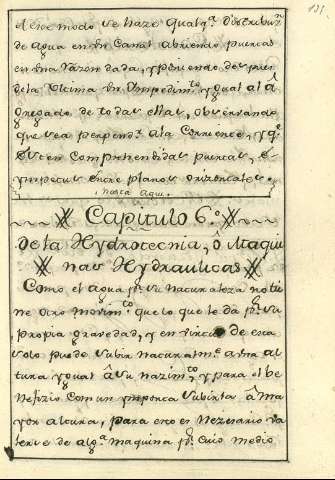 131.
el otro modo se haze qualqr. Distribuzn.
de Agua en un Canal abriendo puertas
en una razon dada, y poniendo despues
de la Ultima un Ympedimto. ygual al A
gregado de todas ellas, observando
que sea perpendr. ala Corriente, y qe.
esten Comprehendidas puertas, é
ympetus entre planos orizontales.
hasta aqui.
Capitulo 6.o
de la Hydrotecnia, ô Maqui
nas Hydraulicas
Como el agua pr. su naturaleza no tie
ne otro movimto. que lo que le da pr. su
propia gravedad, y en virtud de esta
solo puede subir naturalmte. a una al
tura ygual â su nazimto., y para el be
nefizio Comun ymporta subirla â ma
yor altura, para esto es Nezesario va
lerse de alga. maquina pr. cuio medio